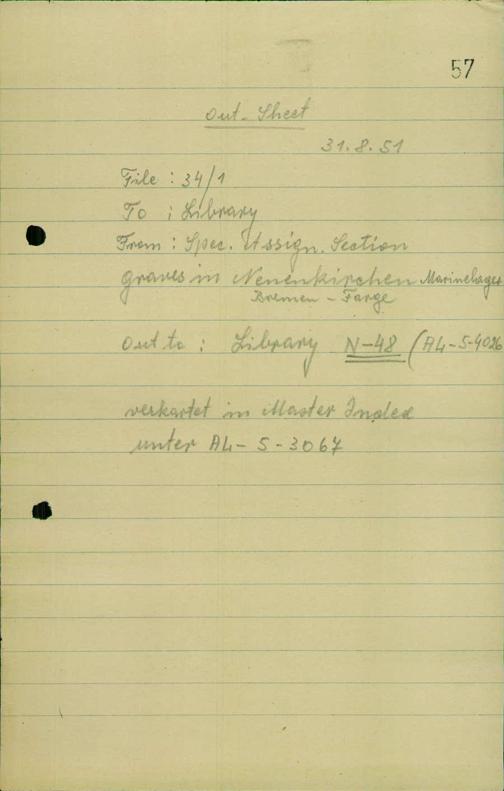 57
Out-Sheet
31.8.51
File : 34/1
To : Library
From : Spec. Assign. Section
graves in Neuenkirchen Marinelager
Bremen - Farge
Out to : Library N-48 (AL-5-4026
verkartet in Master Index
unter AL-5-3067